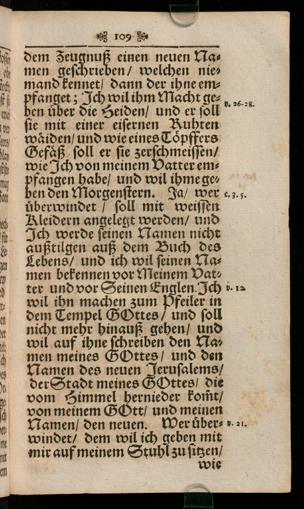 109
dem Zeugnuß einen neuen Na-
men geschrieben / welchen nie-
mand kennet / dann der ihne em-
pfanget; Ich wil ihm Macht ge-
ben über die Heiden / und er soll
v. 26-28.
sie mit einer eisernen Ruhten
wäiden / und wie eines Töpffers
Gefäß soll er sie zerschmeissen /
wie Ich von meinem Vatter em-
pfangen habe / und wil ihme ge-
ben den Morgenstern. Ja / wer
c. 3. 5.
überwindet / soll mit weissen
Kleidern angelegt werden / und
Ich werde seinen Namen nicht
außtilgen auß dem Buch des
Lebens / und ich wil seinen Na-
men bekennen vor Meinem Vat-
ter und vor Seinen Englen. Ich
v. 12
wil ihn machen zum Pfeiler in
dem Tempel GOttes / und soll
nicht mehr hinauß gehen / und
wil auf ihne schreiben den Na-
men meines GOttes / und den
Namen des neuen Jerusalems /
der Stadt meines GOttes / die
vom Himmel hernieder kom̃t /
von meinem GOtt / und meinen
Namen / den neuen. Wer über-
v. 21.
windet / dem wil ich geben mit
mir auf meinem Stuhl zu sitzen /
wie